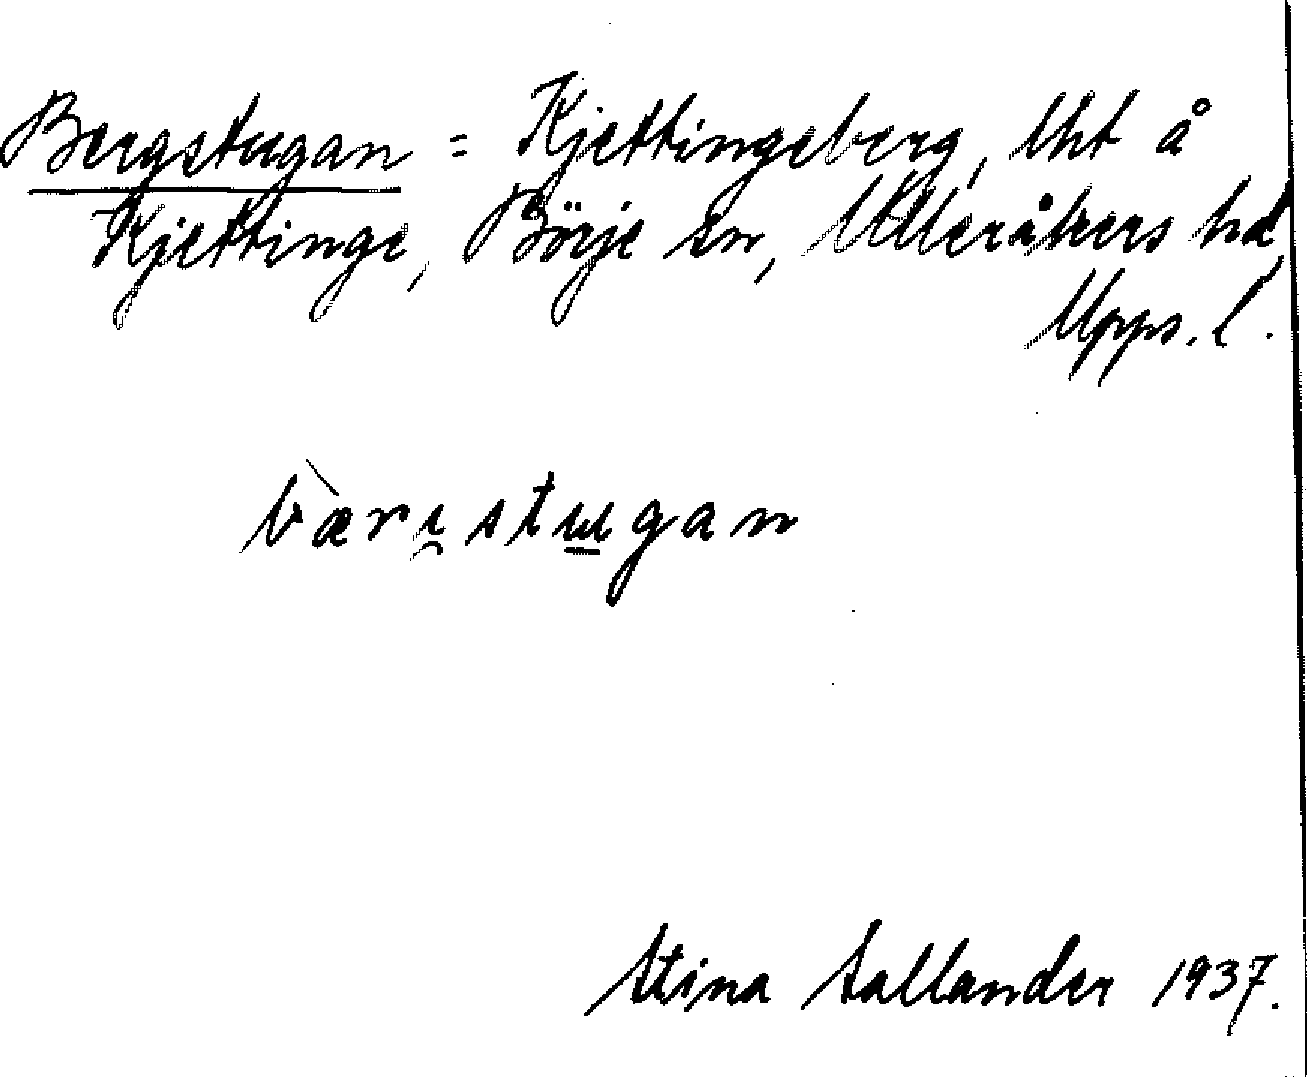 Bergstugan = Kjettingeberg, lht å
Kjettinge, Börje sn, Ulleråkers hd,
Upps. l.
bæ̀rı̯stu̲gan
Stina Sallander 1937.